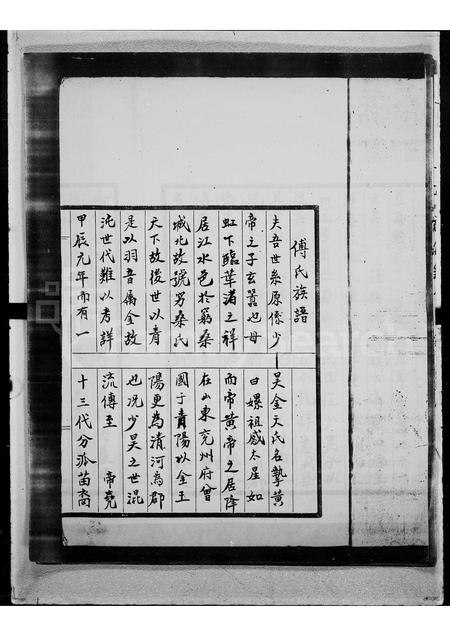 傅氏族譜
夫吾世系原係少昊金天氏名摯黃
帝之子玄囂也母曰嫘祖感大星如
虹下臨華渚之祥而帝黃帝之居降
居江水邑於窮桑在山東兗州府曾
城北故號男桑氏國于青陽以金王
天下故後世以青陽更為清河為郡
是以羽音屬金故也况少昊之世混
沌世代難以考詳流傳至 帝堯
甲辰元年而有一十三代分派苗裔